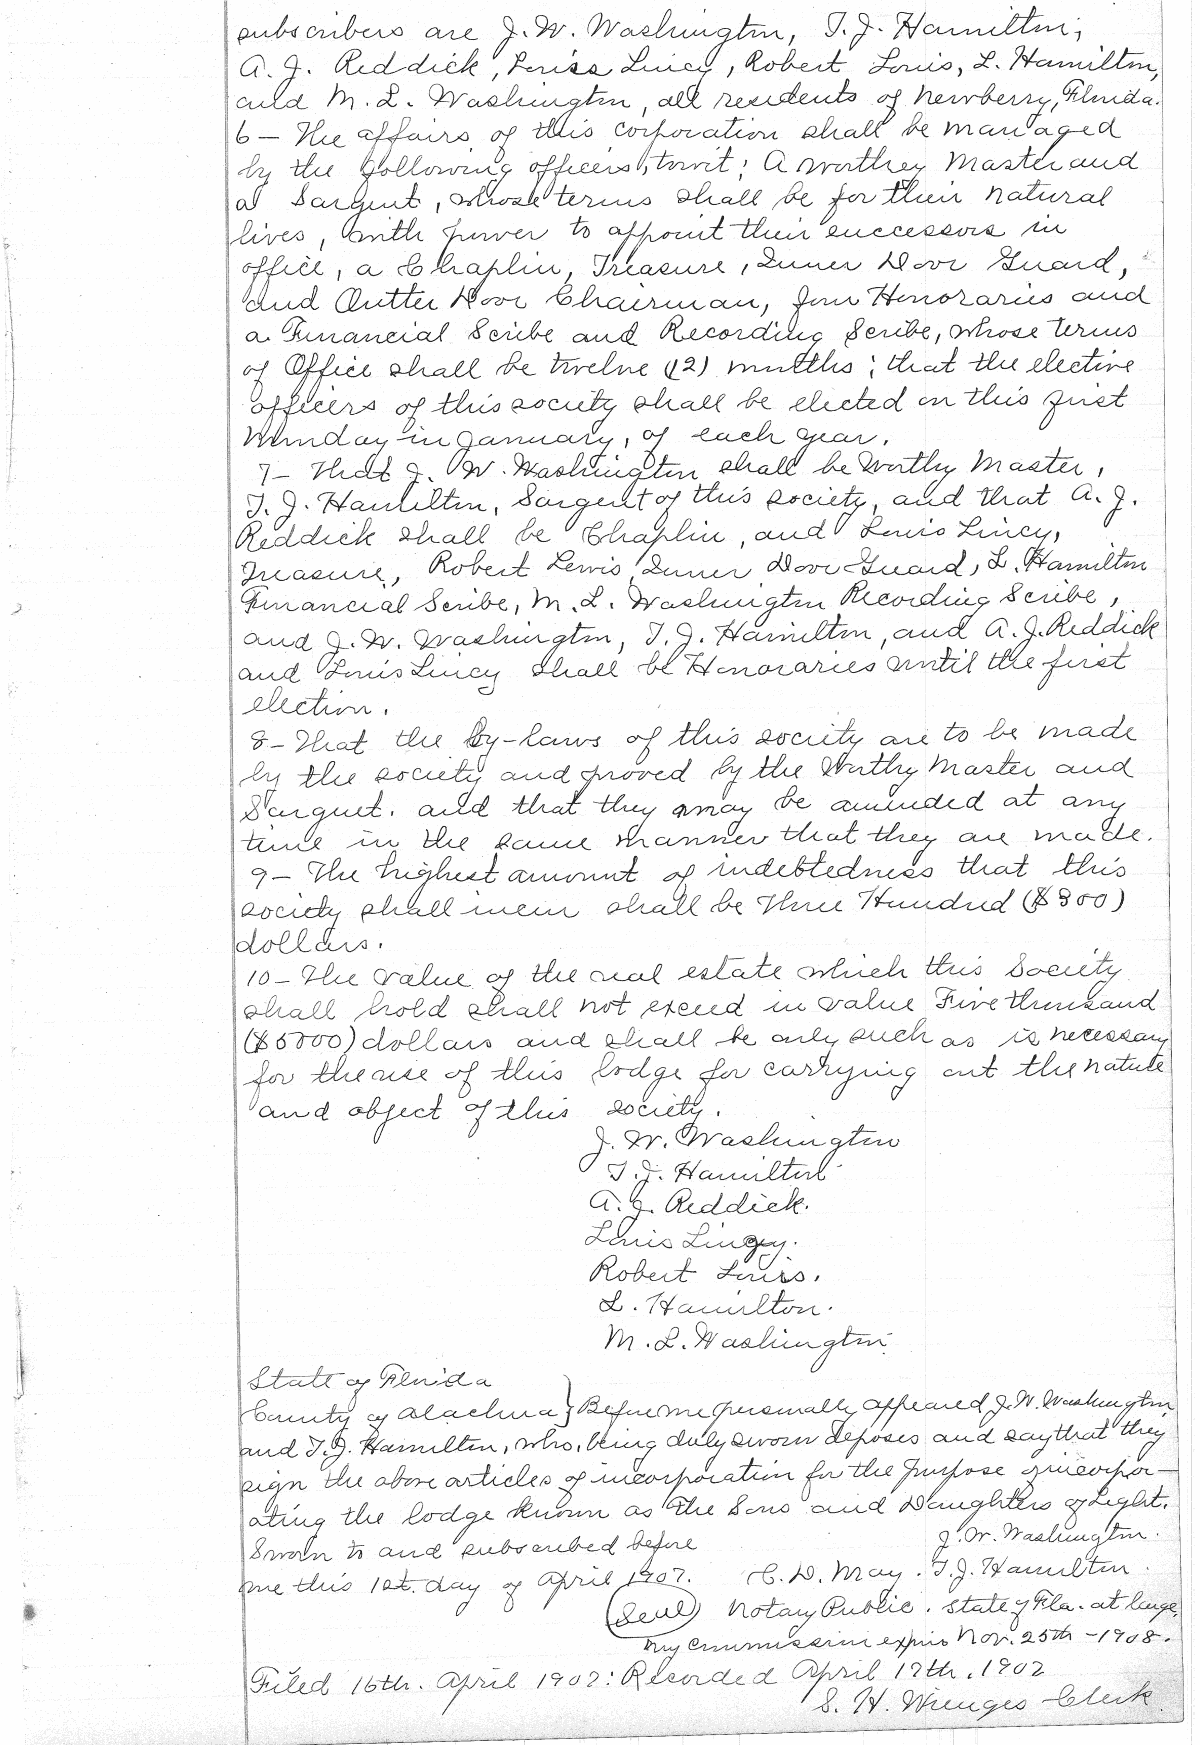 subscribers are J. W. Washington, T. J. Hamilton,
A. J. Reddick, Louiss Lincy, Robert Louis, L. Hamilton,
and M. L. Washington, all residents of Newberry, Florida.
6 — The affairs of this corporation shall be managed
by the following officers, towit; A worthey Master and
a Sargent, whose terms shall be for their natural
lives, with power to appoint their successors in
office, a Chaplin, Treasure, Inner Door Guard,
and Outter Door Chairman, four Honoraries and
a Financial Scribe and Recording Scribe, whose terms
of Office shall be twelve (12) months; that the elective
officers of this society shall be elected on this first
Monday in January, of each year.
7 — That J. W. Washington shall be Worthy Master,
T. J. Hamilton, Sargent of this society, and that A. J.
Reddick shall be Chaplin, and Louis Lincy,
Treasure, Robert Lewis, Inner Door Guard, L. Hamilton
Financial Scribe, M. L. Washington Recording Scribe,
and J. W. Washington, T. J. Hamilton, and A. J. Reddick
and Louis Lincy shall be Honoraries until the first
election.
8 — That the by-laws of this society are to be made
by the society and proved by the Worthy Master and
Sarguet. and that they may be amended at any
time in the same manner that they are made.
9 — The highest amount of indebtedness that this
society shall incur shall be Three Hundred ($300)
dollars.
10 — The value of the real estate which this Society
shall hold shall not exceed in value Five thousand
($5000) dollars and shall be only such as is necessary
for the use of this lodge for carrying out the nature
and object of this society.
J. W. Washington
T. J. Hamilton
A. J. Reddick.
Louis Lincy.
Robert Louis.
L. Hamilton.
M. L. Washington.
State of Florida
County of Alachua } Before me personally appeared J. W. Washington
and T. J. Hamilton, who, being duly sworn deposes and say that they
sign the above articles of incorporation for the purpose of incorpor-
ating the lodge known as the Sons and Daughters of Light.
J. W. Washington.
Sworn to and subscribed before
me this 1st. day of April 1907. C. D. May. T. J. Hamilton.
(Seal) Notary Public. State of Fla. at large,
my commission expires Nov. 25th - 1908.
Filed 16th. April 1907: Recorded April 17th, 1907
S. H. Wienges Clerk